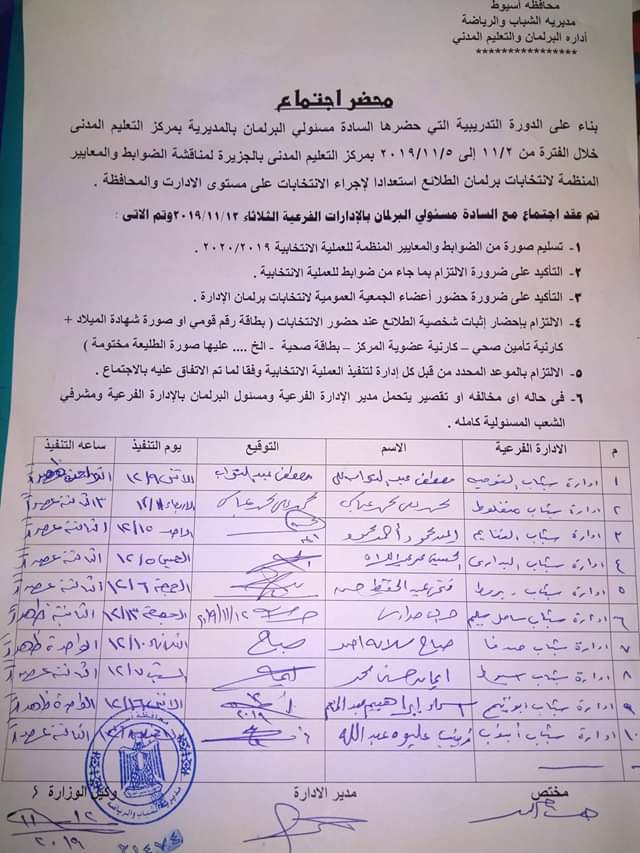 محافظه أسيوط
مديريه الشباب والرياضة
أداره البرلمان والتعليم المدني
****************
محضر اجتماع
بناء على الدورة التدريبية التي حضرها السادة مسئولي البرلمان بالمديرية بمركز التعليم المدنى
خلال الفترة من ١١/٢ إلى ٢٠١٩/١١/٥ بمركز التعليم المدنى بالجزيرة لمناقشة الضوابط والمعايير
المنظمة لانتخابات برلمان الطلائع استعدادا لإجراء الانتخابات على مستوى الادارت والمحافظة .
تم عقد اجتماع مع السادة مسئولي البرلمان بالإدارات الفرعية الثلاثاء ٢٠١٩/١١/١٢وتم الاتى :
١- تسليم صورة من الضوابط والمعايير المنظمة للعملية الانتخابية ٢٠٢٠/٢٠١٩ .
٢- التأكيد على ضرورة الالتزام بما جاء من ضوابط للعملية الانتخابية .
٣- التأكيد على ضرورة حضور أعضاء الجمعية العمومية لانتخابات برلمان الإدارة .
٤- الالتزام بإحضار إثبات شخصية الطلائع عند حضور الانتخابات ( بطاقة رقم قومي او صورة شهادة الميلاد +
كارنية تأمين صحي – كارنية عضوية المركز – بطاقة صحية - الخ .... عليها صورة الطليعة مختومة )
٥- الالتزام بالموعد المحدد من قبل كل إدارة لتنفيذ العملية الانتخابية وفقا لما تم الاتفاق عليه بالاجتماع .
٦- فى حاله اى مخالفه او تقصير يتحمل مدير الإدارة الفرعية ومسئول البرلمان بالإدارة الفرعية ومشرفي
الشعب المسئولية كامله .
م الادارة الفرعية الاسم التوقيع يوم التنفيذ ساعه التنفيذ
١ ادارة شباب القوصيه مصطفى عبد التواب مصطفى عبد التواب الاثنين ١٢/٩
٢ ادارة شباب منفلوط الاربعاء
٣ ادارة شباب الغنايم أحمد محمود الاحد ١٢/١٥ الثانية عصرا
٤ ادارة شباب البدارى الخميس ١٢/٥ الثانية عصرا
٥ ادارة شباب ديروط فتحى عبد الحفيظ حسن الجمعة ١٢/٦ الثالثة عصرا
٦ ادارة شباب ساحل سليم ٢٠١٩/١١/١٢ الجمعة ١٢/١٣ الثانية ظهرا
٧ ادارة شباب صدفا صباح سلامه احمد صباح الثلاثاء ١٢/١٠ الواحدة ظهرا
٨ ادارة شباب اسيوط ايمان حسن محمد السبت ١٢/٧ الثانية عصرا
٩ ادارة شباب ابوتيج اسماء ابراهيم عبد ٢٠١٩ الاثنين ١٢/١٦ الواحدة ظهرا
١٠ ادارة شباب أبنوب زينب عليوه عبد الله الثانية عصرا
مختص مدير الادارة وكيل الوزارة
١٢
١١
٢٠١٩